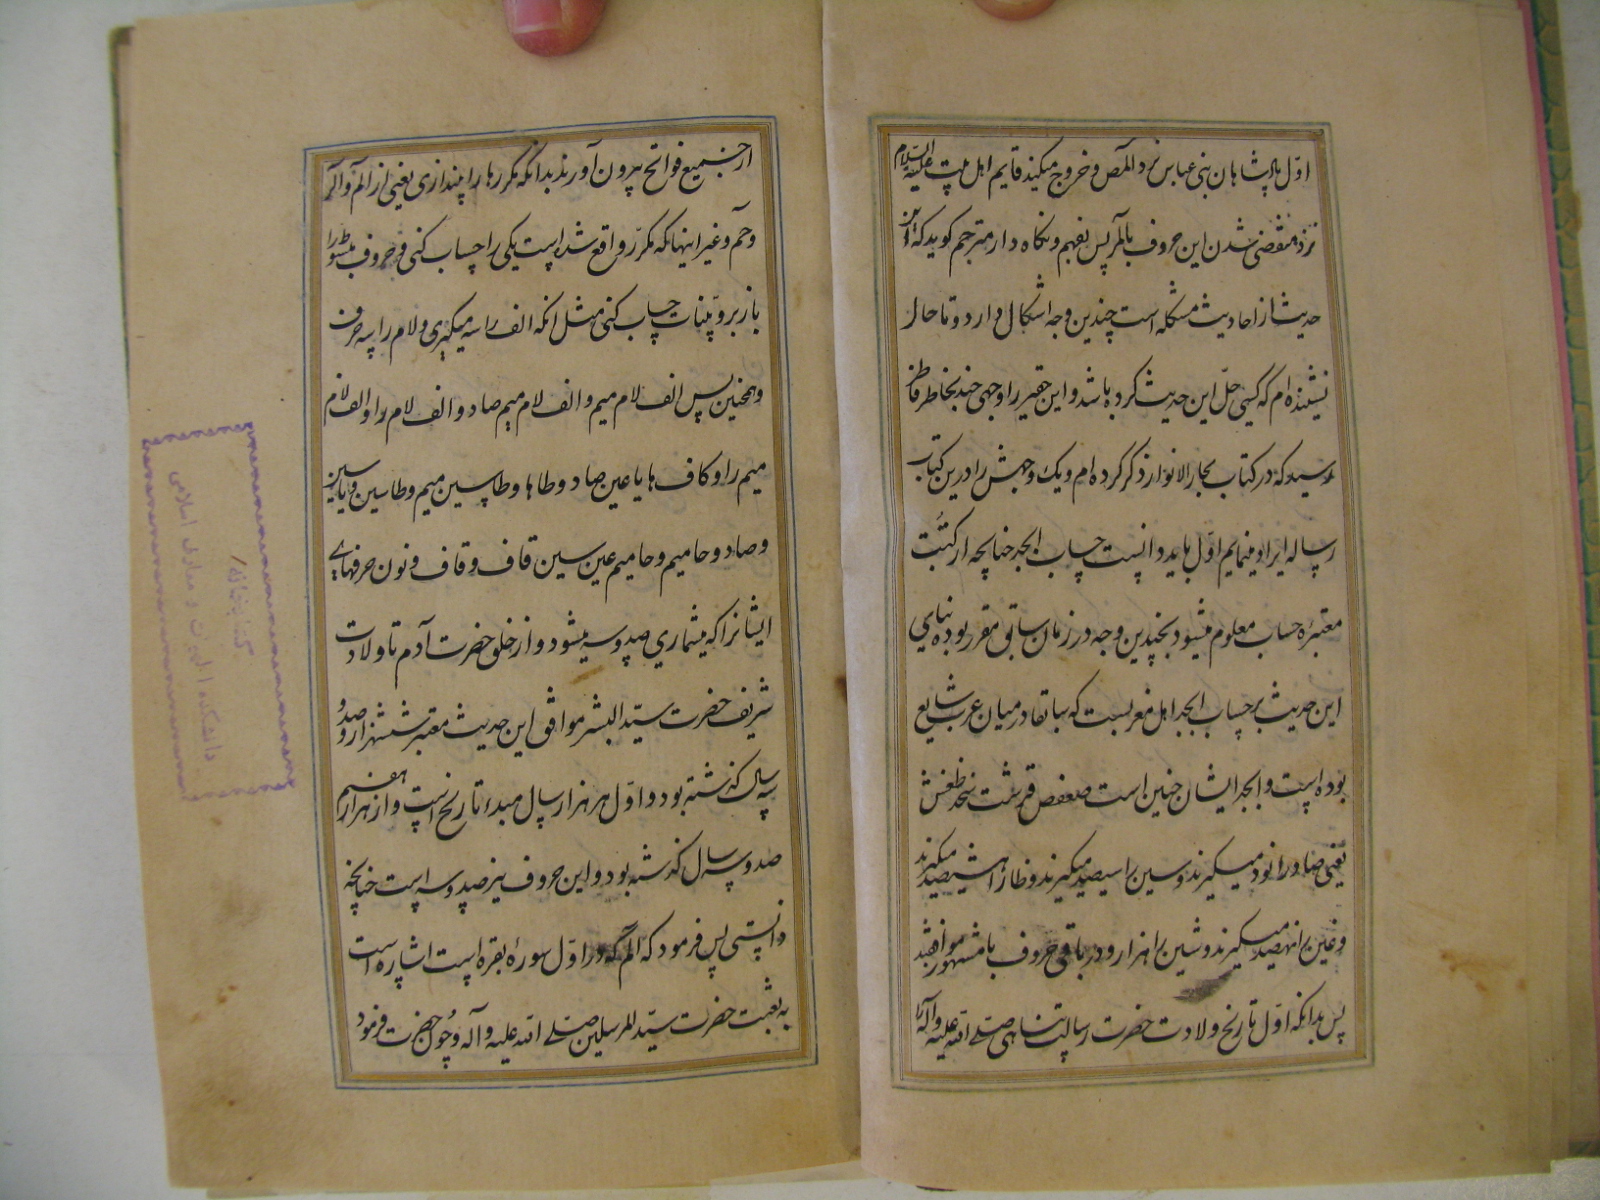 اوّل پادشاهان بنی عباس نزد المص و خروج میکند قایم اهل بیت علیه السّلام
نزد منقضی شدن این حروف بالمر پس بفهم و نگاه دار مترجم کوید که این
حدیث از احادیث مشکله است چندین وجه اشکال دارد و تا حال
نشنیده ام که کسی حلّ این حدیث کرده باشد و این حقیر را وجهی چند بخاطر قاصر
رسید که در کتاب بحار الانوار ذکر کرده ام و یک وجهش را درین کتاب
رساله ایراد مینمایم اوّل باید دانست حساب ابجد چنانچه از کتب
معتبره حساب معلوم میشود بچندین وجه در زمان سابق مقرر بوده بنای
این حدیث بر حساب ابجد اهل مغربست که سابقا در میان عرب شایع
بوده است و ابجد ایشان چنین است صعفض قرست ثخذ ظغش
یعنی صاد را نود میکیرند و سین را سیصد میکیرند و ظا را هشتصد میکیرند
و غین را نهصد میکیرند و شین را هزار و در باقی حروف با مشهور موافقند
پس بدانکه اوّل تاریخ ولادت حضرت رسالت پناهی صلّی الله علیه و آله را
از جمیع فواتح بیرون آورند بدانکه مکررها را بیندازی یعنی از الم و الر
و حم و غیر اینها که مکرّر واقع شده است یکی را حساب کنی و حروف مبسوط را
باز بر و بیّنات حساب کنی مثل انکه الف را سه میکیری و لام را سه حرف
و همچنین پس الف لام میم و الف لام میم صاد و الف لام را و الف لام
میم را و کاف ها یا عین صاد و طا ها و طا سین میم و طا سین و یا سین
و صاد و حا میم و حا میم عین سین قاف و قاف و نون حرفهای
ایشانرا که بشماری صد و سه میشود و از خلق حضرت آدم تا ولادت
شریف حضرت سیّد البشر موافق این حدیث معتبر ششهزار و صد و
سه سال کذشته بود و اوّل هر هزار سال مبدء تاریخ است و از هزار هفتم
صد و سه سال کذشته بود و این حروف نیز صد و سه است چنانچه
دانستی پس فرمود که الم که در اوّل سورهٔ بقره است اشاره است
به بعثت حضرت سیّد المرسلین صلّی الله علیه و آله و چون حضرت فرمود
کتابخانهٔ
دانشکده الهیات و معارف اسلامی